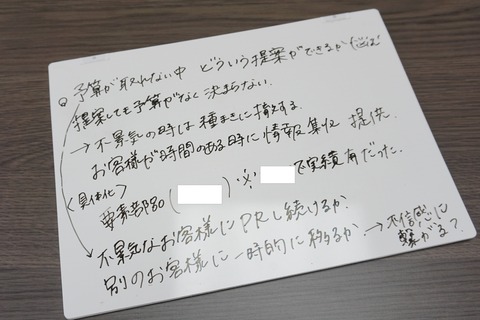 Q 予算が取れない中 どういう提案ができるか
提案しても予算がなく決まらない。
→不景気の時は種まきに備える。
お客様が時間のある時に情報集収 提供
〈具体化〉
要素部品( )※ で実績有だった。
不景気なお客様にPRし続けるか
別のお客様に一時的に移るか → 不信感に
繋がる?